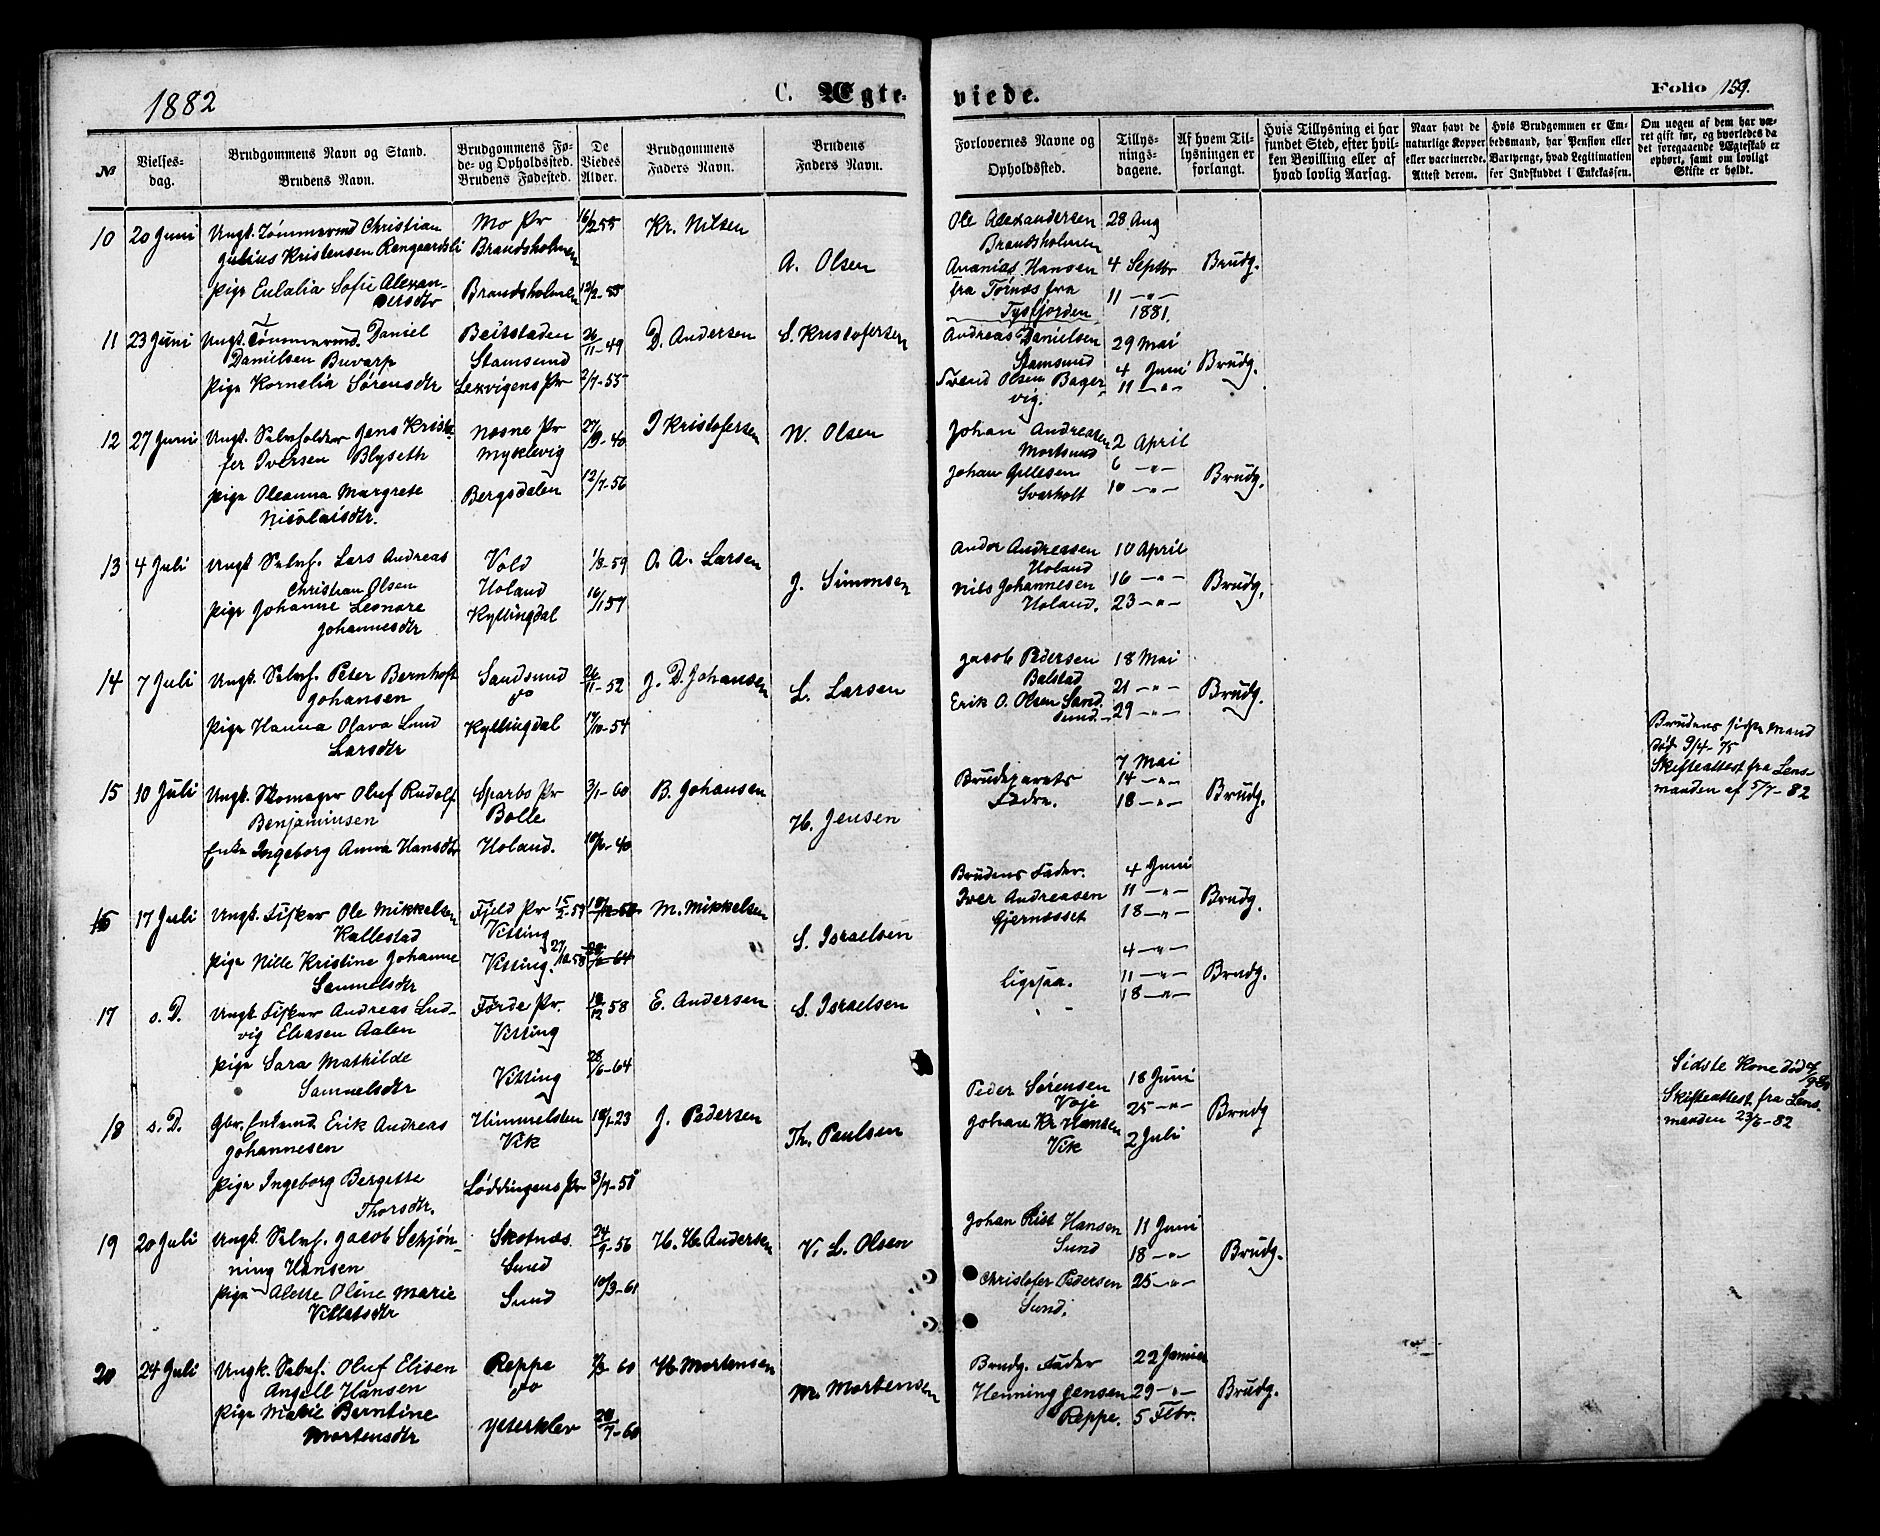 1882
C. Ægte-
viede.
Folio 159.
№
Vielses-
dag.
Brudgommens Navn og Stand.
Brudens Navn.
Brudgommens Fø-
de- og Opholdsted.
Brudens Fødested.
De
Viedes
Alder.
Brudgommens
Faders Navn.
Brudens
Faders Navn.
Forlovernes Navne og
Opholdsted.
Tillys-
nings-
dagene.
Af hvem Til-
lysningen er
forlangt.
Hvis Tillysning ei har
fundet Sted, efter hvil-
ken Bevilling eller af
hvad lovlig Aarsag.
Naar havt de
naturlige Kopper
eller vaccinerede.
Attest derom.
Hvis Brudgommen er Em-
bedsmand, har Pension eller
Vartpenge, hvad Legitimation
for Indskuddet i Enkekassen.
Om nogen af dem har væ-
ret gift før, og hvorledes da
det foregaaende Ægteskab er
ophørt, samt om lovligt
Skifte er holdt.
10 20 Juni Ungk. Tømmermd Christian Mo Pr 16/2 55 Kr. Nilsen
Julius Kristensen Rengaardsli Brandsholmen A. Olsen
Pige Eulalia Sofie Alexan- Brandsholmen 55
dersdtr
Ole Alexandersen 28 Aug
Brandsholmen
Ananias Hansen 4 Septbr Brudg.
fra Tørnæs fra 11 —"—
Tysfjorden 1881.
11 23 Juni Ungk. Tømmermd. Daniel Beitstaden 26/11-49 D. Andersen S. Kristofersen
Danielsen Buvarp Stamsund
Pige Kornelia Sørensdtr Lexvigens Pr 2/7-55
Andreas Danielsen 29 Mai
Stamsund 4 Juni Brudg.
Svend Olsen Bager 11 —"—
vig.
12 27 Juni Ungk. Selvfolder Jens Kristo- Næsne Pr 27/9-40 I Kristofersen N. Olsen
fer Iversen Blyseth Myklevig
Pige Oleanna Margrete Bergsdalen 12/7-56
Nicolaisdtr.
Johan Andreasen 2 April
Mortsund
Johan 6 —"— Brudg.
Svarholt 10 —"—
13 4 Juli Ungk Selvf. Lars Andreas Vold 1/8-59 O. A. Larsen
Christian Olsen Holand J. Simonsen
Pige Johanne Leonore Kyllingdal 16/1 57
Johannesdtr
Andor Andreasen 10 April
Holand
Nils Johannesen 16 —"— Brudg.
Holand. 23 —"—
14 7 Juli Ungk. Selvf. Peter Bernhoft Sandsund 26/11-52 J. D. Johansen
Johansen do L. Larsen
Pige Hanna Olava Lund Kyllingdal 17/10-54
Larsdtr
Jacob Pedersen 18 Mai
Balstad 21 —"— Brudg.
Erik O. Olsen Sand
sund. 29 —"—
15 10 Juli Ungk. Skomager Oluf Rudolf Sparbo Pr 3/1-60 B. Johansen
Benjaminsen Bolle H. Jensen
Enke Ingeborg Anna Hansdtr Holand. 10/6-40
7 Mai
Brudeparets 14 —"— Brudg.
Fædre. 18 —"—
Brudens sidste Mand
død 9/4-75
Skifteattest fra Lens-
manden af 5/7-82
16 17 Juli Ungk. Fisker Ole Mikkelsen Fjeld Pr M. Mikkelsen
Kallestad Vitting S. Israelsen
Pige Nille Kristine Johanne Vitting. 27/10 58
Samuelsdtr
Brudens Fader. 4 Juni
Iver Andreasen 11 —"— Brudg.
Gjernæsset 18 —"—
17 s. D. Ungk Fisker Andreas Lud- Førde Pr. 18/12 58 E. Andersen S. Israelsen
vig Eliasen Aalen Vitting
Pige Sara Mathilde Vitting 28/6-64
Samuelsdtr
4 —"—
ligesaa. 11 —"— Brudg.
18 —"—
18 s. D. Gbr. Enkemd Erik Andreas Himmelsten 18/1-23 J. Pedersen
Johannesen Vik Th. Paulsen
Pige Ingeborg Bergette Løddingens Pr 3/7-51
Thorsdtr.
Peder Sørensen 18 Juni
Voje 25 —"— Brudg
Johan Kr Hansen 2 Juli
Vik
Sidste Kone død
Skifteattest fra Lens-
manden 23/6-82
19 20 Juli Ungk. Selvf. Jacob Schjøn- Skotnæs 24/9-56 H. H. Andersen V. L. Olsen
ning Hansen Sund
Pige Alette Oline Marie Sund 10/3-61
Villatsdtr
Johan Rist Hansen 11 Juni
Sund 18 —"— Brudg.
Christofer Pedersen 25 —"—
Sund.
20 24 Juli Ungk. Selvf. Oluf Elisen Reppe 60 H. Mortensen
Angell Hansen do M. Mortensen
Pige Marie Berntine Ytterklev 20/7-60
Mortensdtr
Brudg. Fader 22 Januar
Henning Jensen 29 —"— Brudg.
Reppe. 5 Febr.